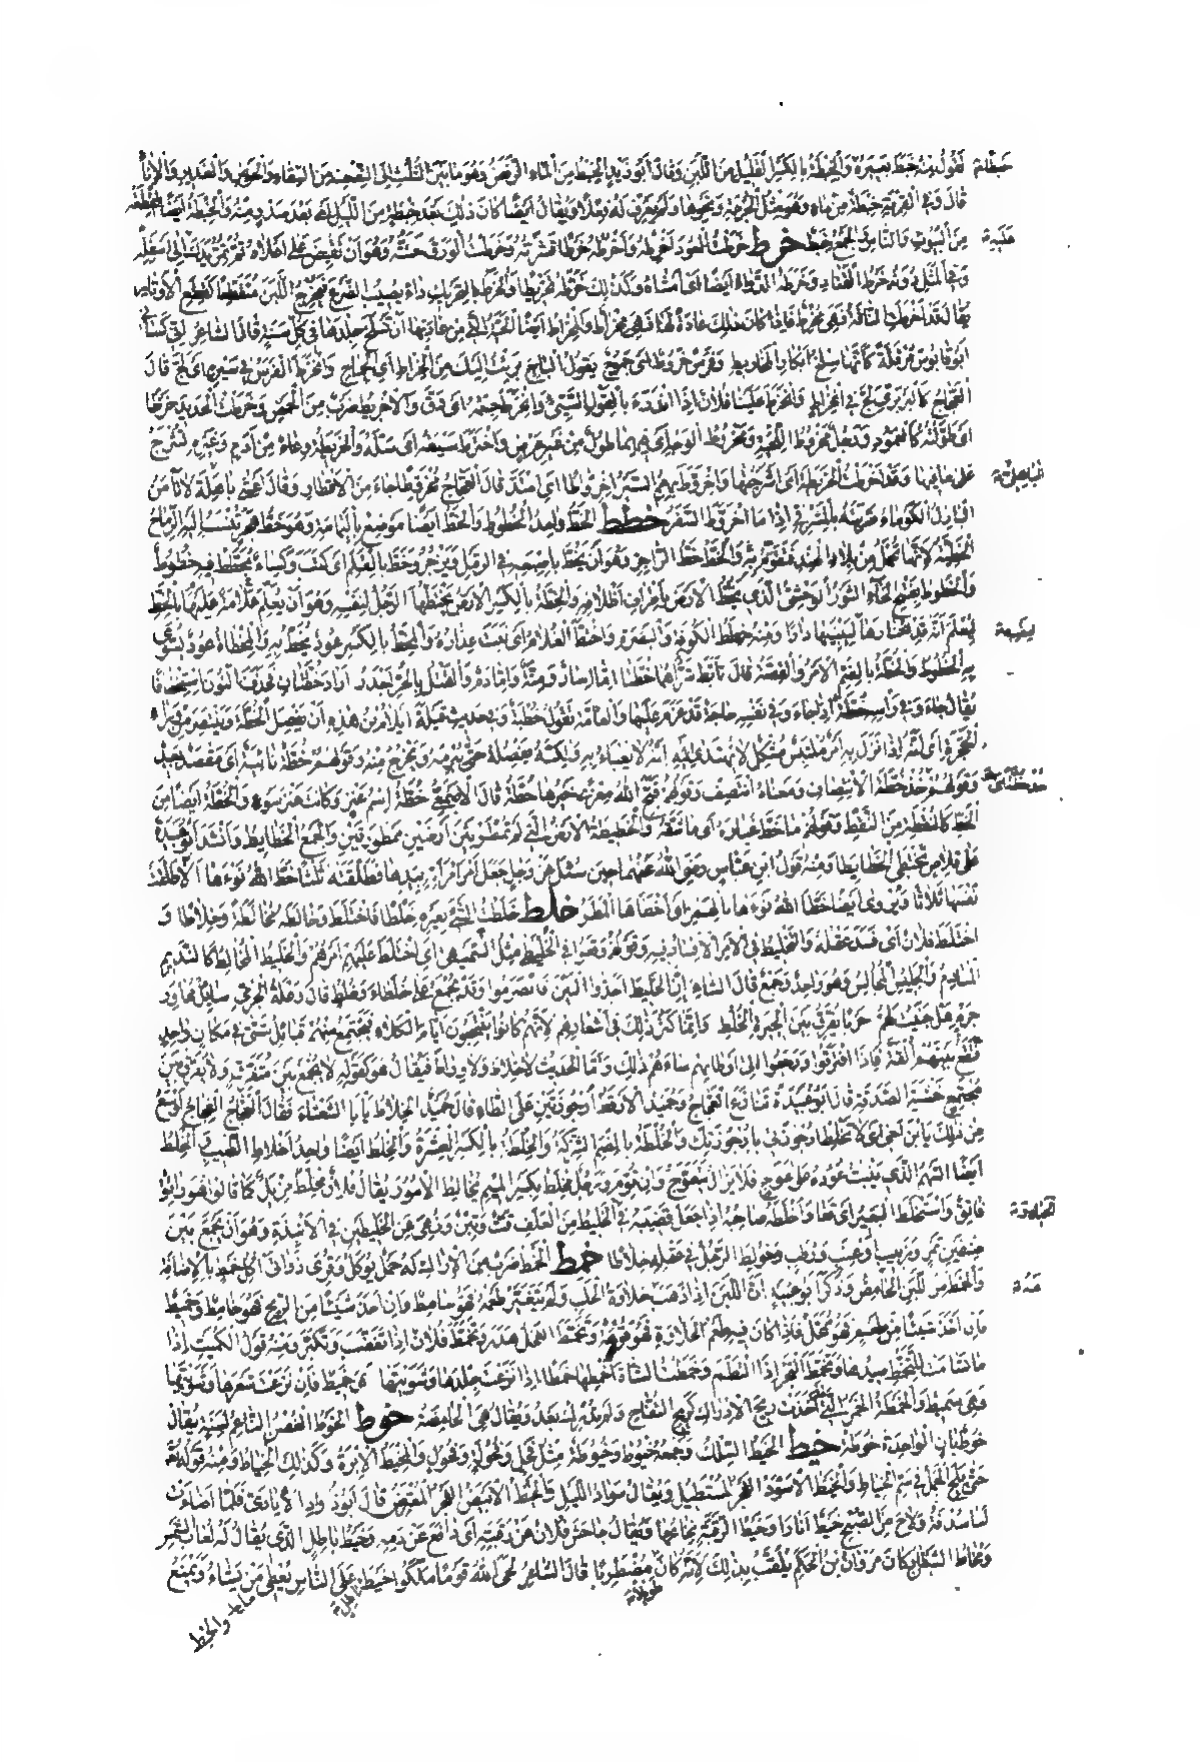 تقول منه خبط بعيره والخبطة بالكسر القليل من اللبن وقال ابو زيد الخبط من الماء الرفض وهو ما بين الثلث الى النصف من السقاء والحوض والغدير والاناء
قال وفى القربة خبطة من ماء وهو مثل الجزعة ونحوها ولم يعرف له فعلا ويقال ايضا كان ذلك بعد خبطة من الليل اى بعد صدر منه والخبطة ايضا القطعة
من البيوت والناس والجمع خبط خرط خرطت العود اخرطه واخرطه خرطا قشرته وخرطت الورق حتته وهو ان تقبض على اعلاه ثم تمر يدك عليه الى اسفله
وفى المثل دونه خرط القتاد وخرطه الدواء ايضا اى امشاه وكذلك خرطه تخريطا والخرط بالتحريك داء يصيب الضرع فيخرج اللبن منعقدا كقطع الاوتار
يقال لقد اخرطت الشاة فهى مخرط فاذا كان ذلك عادة لها فهى مخراط والمخراط ايضا الحية التى من عادتها ان تسلخ جلدها فى كل سنة قال الشاعر انى كسانى
ابو قابوس مرفلة كانها سلخ ابكار المخاريط وفرس خروط اى جموح يقول البائع برئت اليك من الخراط اى الجماح وانخرط الفرس فى سيره اى لج قال
العجاج كالبربرى لج فى انخراط وانخرط علينا فلان اذا اندرء بالقول السيئ وانخرط جسمه اى دق والاخريط ضرب من الحمض وخرطت الحديد خرطا
اى طولته كالعمود ورجل مخروط اللحية ومخروط الوجه اى فيهما طول من غير عرض واخترط سيفه اى سله والخريطة وعاء من ادم وغيره تشرج
على ما فيها وقد اخرطت الخريطة اى اشرجتها واخروط بهم السير اخرواطا اى امتد قال العجاج مخروطا جاء من الاقطار وقال اعشى باهلة لا تامن
البازل الكوماء ضربته بالمشرفى اذا ما اخروط السفر خطط الخط واحد الخطوط والخط ايضا موضع باليمامة وهو خط هجر تنسب اليه الرماح
الخطية لانها تحمل من بلاد الهند فتقوم به والخط خط الزاجر وهو ان يخط باصبعه فى الرمل ويزجر وخط بالقلم اى كتب وكساء مخطط فيه خطوط
والخطوط بفتح الخاء الثور الوحشى الذى يخط الارض باطراف اظلافه والخطة بالكسر الارض يختطها الرجل لنفسه وهو ان يعلم علامة عليها بالخط
ليعلم انه قد اختارها ليبنيها دارا ومنه خطط الكوفة والبصرة واختط الغلام اى نبت عذاره والمخط بالكسر عود يخط به والمخطاط عود تسوى
به الخطوط والخطة بالضم الامر والقصة قال تابط شرا هما خطتا اما اسار ومنة واما دم والقتل بالحر اجدر اراد خطتان فحذف النون استخفافا
يقال جاء وفى راسه خطة اذا جاء وفى نفسه حاجة قد عزم عليها والعامة تقول خطبة وفى حديث قيلة ايلام ابن هذه ان يفصل الخطة وينتصر من وراء
الحجزة اى انه اذا نزل به امر ملتبس مشكل لا يهتدى له انه لا يعيا به ولكنه يفصله حتى يبرمه ويخرج منه وقولهم خطة نائية اى مقصد بعيد
وقولهم خذ خطة الانتصاف ومعناه انتصف وقولهم قبح الله معزى خيرها خطة قال الاصمعى خطة اسم عنز وكانت عنز سوء والخطة ايضا من
الخط كالنقطة من النقط وقولهم ما خط غباره اى ما شقه والخطيطة الارض التى لم تمطر بين ارضين ممطورتين والجمع الخطائط وانشد ابو عبيدة
على قلاص تختطى الخطائطا ومنه قول ابن عباس رضى الله عنهما حين سئل عن رجل جعل امر امراته بيدها فطلقته ثلثا خط الله نوءها الا طلقت
نفسها ثلاثا ويروى ايضا خطا الله نوءها بالهمز اى اخطاها المطر خلط خلطت الشئ بغيره خلطا فاختلط وخالطه مخالطة وخلاطا و
اختلط فلان اى فسد عقله والتخليط فى الامر الافساد فيه وقولهم وقعوا فى الخليطى مثل السميهى اى اختلط عليهم امرهم والخليط المخالط كالنديم
المنادم والجليس المجالس وهو واحد وجمع قال الشاعر ان الخليط اجدوا البين فانصرموا وقد يجمع على خلطاء وخلط قال وعلة الجرمى سائل مجاور
جرم هل جنيت لهم حربا يفرق بين الجيرة الخلط وانما كثر ذلك فى اشعارهم لانهم كانوا ينتجعون ايام الكلاء فيجتمع منهم قبائل شتى فى مكان واحد
فتقع بينهم الفة فاذا افترقوا ورجعوا الى اوطانهم ساءهم ذلك واما الحديث لا خلاط ولا وراط فيقال هو كقوله لا يجمع بين متفرق ولا يفرق بين
مجتمع خشية الصدقة قال ابو عبيدة تنازع العجاج وحميد الارقط ارجوزتين على الطاء قال حميد الخلاط يابا الشعثاء فقال العجاج الفجاج اوسع
من ذلك يابن اخى اى لا تخلط ارجوزتى بارجوزتك والخلطة بالضم الشركة والخلطة بالكسر العشرة والخلط ايضا واحد اخلاط الطيب والخلط
ايضا السهم الذى ينبت عوده على عوج فلا يزال يتعوج وان قوم ورجل مخلط بكسر الميم يخالط الامور يقال فلان مخلط مزيل كما قالوا هو راتق
فاتق واستخلط البعير اى قعا واخلطه صاحبه اذا جعل قضيبه فى الحياء والخليط من العلف قت وتبن ونهى عن الخليطين فى الانبذة وهو ان يجمع بين
صنفين تمر وزبيب وعنب ورطب وخولط الرجل فى عقله خلاطا خمط الخمط ضرب من الاراك له حمل يؤكل وقرئ ذواتى اكل خمط بالاضافة
والخمط من اللبن الحامض وذكر ابو عبيد ان اللبن اذا ذهب حلاوة الحلب ولم يتغير طعمه فهو سامط فان اخذ شيئا من الريح فهو خامط وخميط
فان اخذ شيئا من طعم فهو ممحل فاذا كان فيه طعم الحلاوة فهو قوهة وتخمط الفحل هدر وتخمط فلان اذا تغضب وتكبر ومنه قول الكميت اذا
ما تسامت للتخمط صيدها وتخمط البحر اذا التطم وخمطت الشاة اخمطها خمطا اذا نزعت جلدها وشويتها فهى خميط فان نزعت شعرها وشويتها
فهى سميط والخمطة الخمر التى اخذت ريح الادراك كريح التفاح ولم تدرك بعد ويقال هى الحامضة خوط الخوط الغصن الناعم لسنة يقال
خوط بان الواحدة خوطة خيط الخيط السلك وجمعه خيوط وخيوطة مثل فحل وفحولة وفحول والمخيط الابرة وكذلك الخياط ومنه قوله تعالى
حتى يلج الجمل فى سم الخياط والخيط الاسود الفجر المستطيل ويقال سواد الليل والخيط الابيض الفجر المعترض قال ابو دواد الايادى فلما اضاءت
لنا سدفة ولاح من الصبح خيط انارا وخيط الرقبة نخاعها ويقال جاحش فلان عن خيط رقبته اى دافع عن دمه وخيط باطل الذى يقال له لعاب الشمس
ومخاط الشيطان وكان مروان بن الحكم يلقب بذلك لانه كان طويلا مضطربا قال الشاعر لحى الله قوما ملكوا خيط باطل على الناس يعطى من يشاء ويمنع